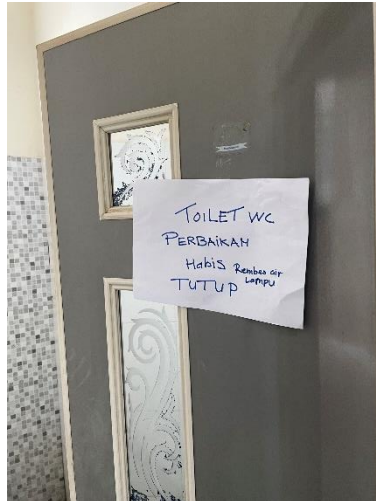 TOILET WC
PERBAIKAN
Habis Rembes air
Lampu
TUTUP